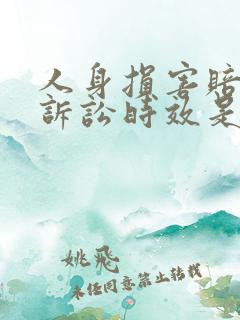 人身損害賠
訴訟時效是
姚飛
未经同意禁止转载